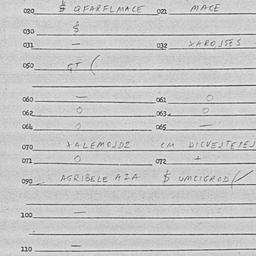 020 $ QFARFLMACE 021 MACE
030 $
031 — 032 XAROJSES
050 GT (
060 — 061 0
062 0 063 0
064 0 065 —
070 XALEMOJDZ CM
071 0 072 +
090 AGRIBELE AZA $ UMCIGROD/
100 —
110 —